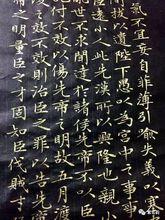 氣不宜妄自菲薄引喻失義以塞
間拔以遺陛下愚以為宮中之事事
臣遠小人此先漢所以興隆也親小
亂世不求聞達於諸侯先帝不以臣
付不效以傷先帝之明故五月
之效不效則治臣之罪以告先帝
帝之明量臣之才固知臣伐賊才